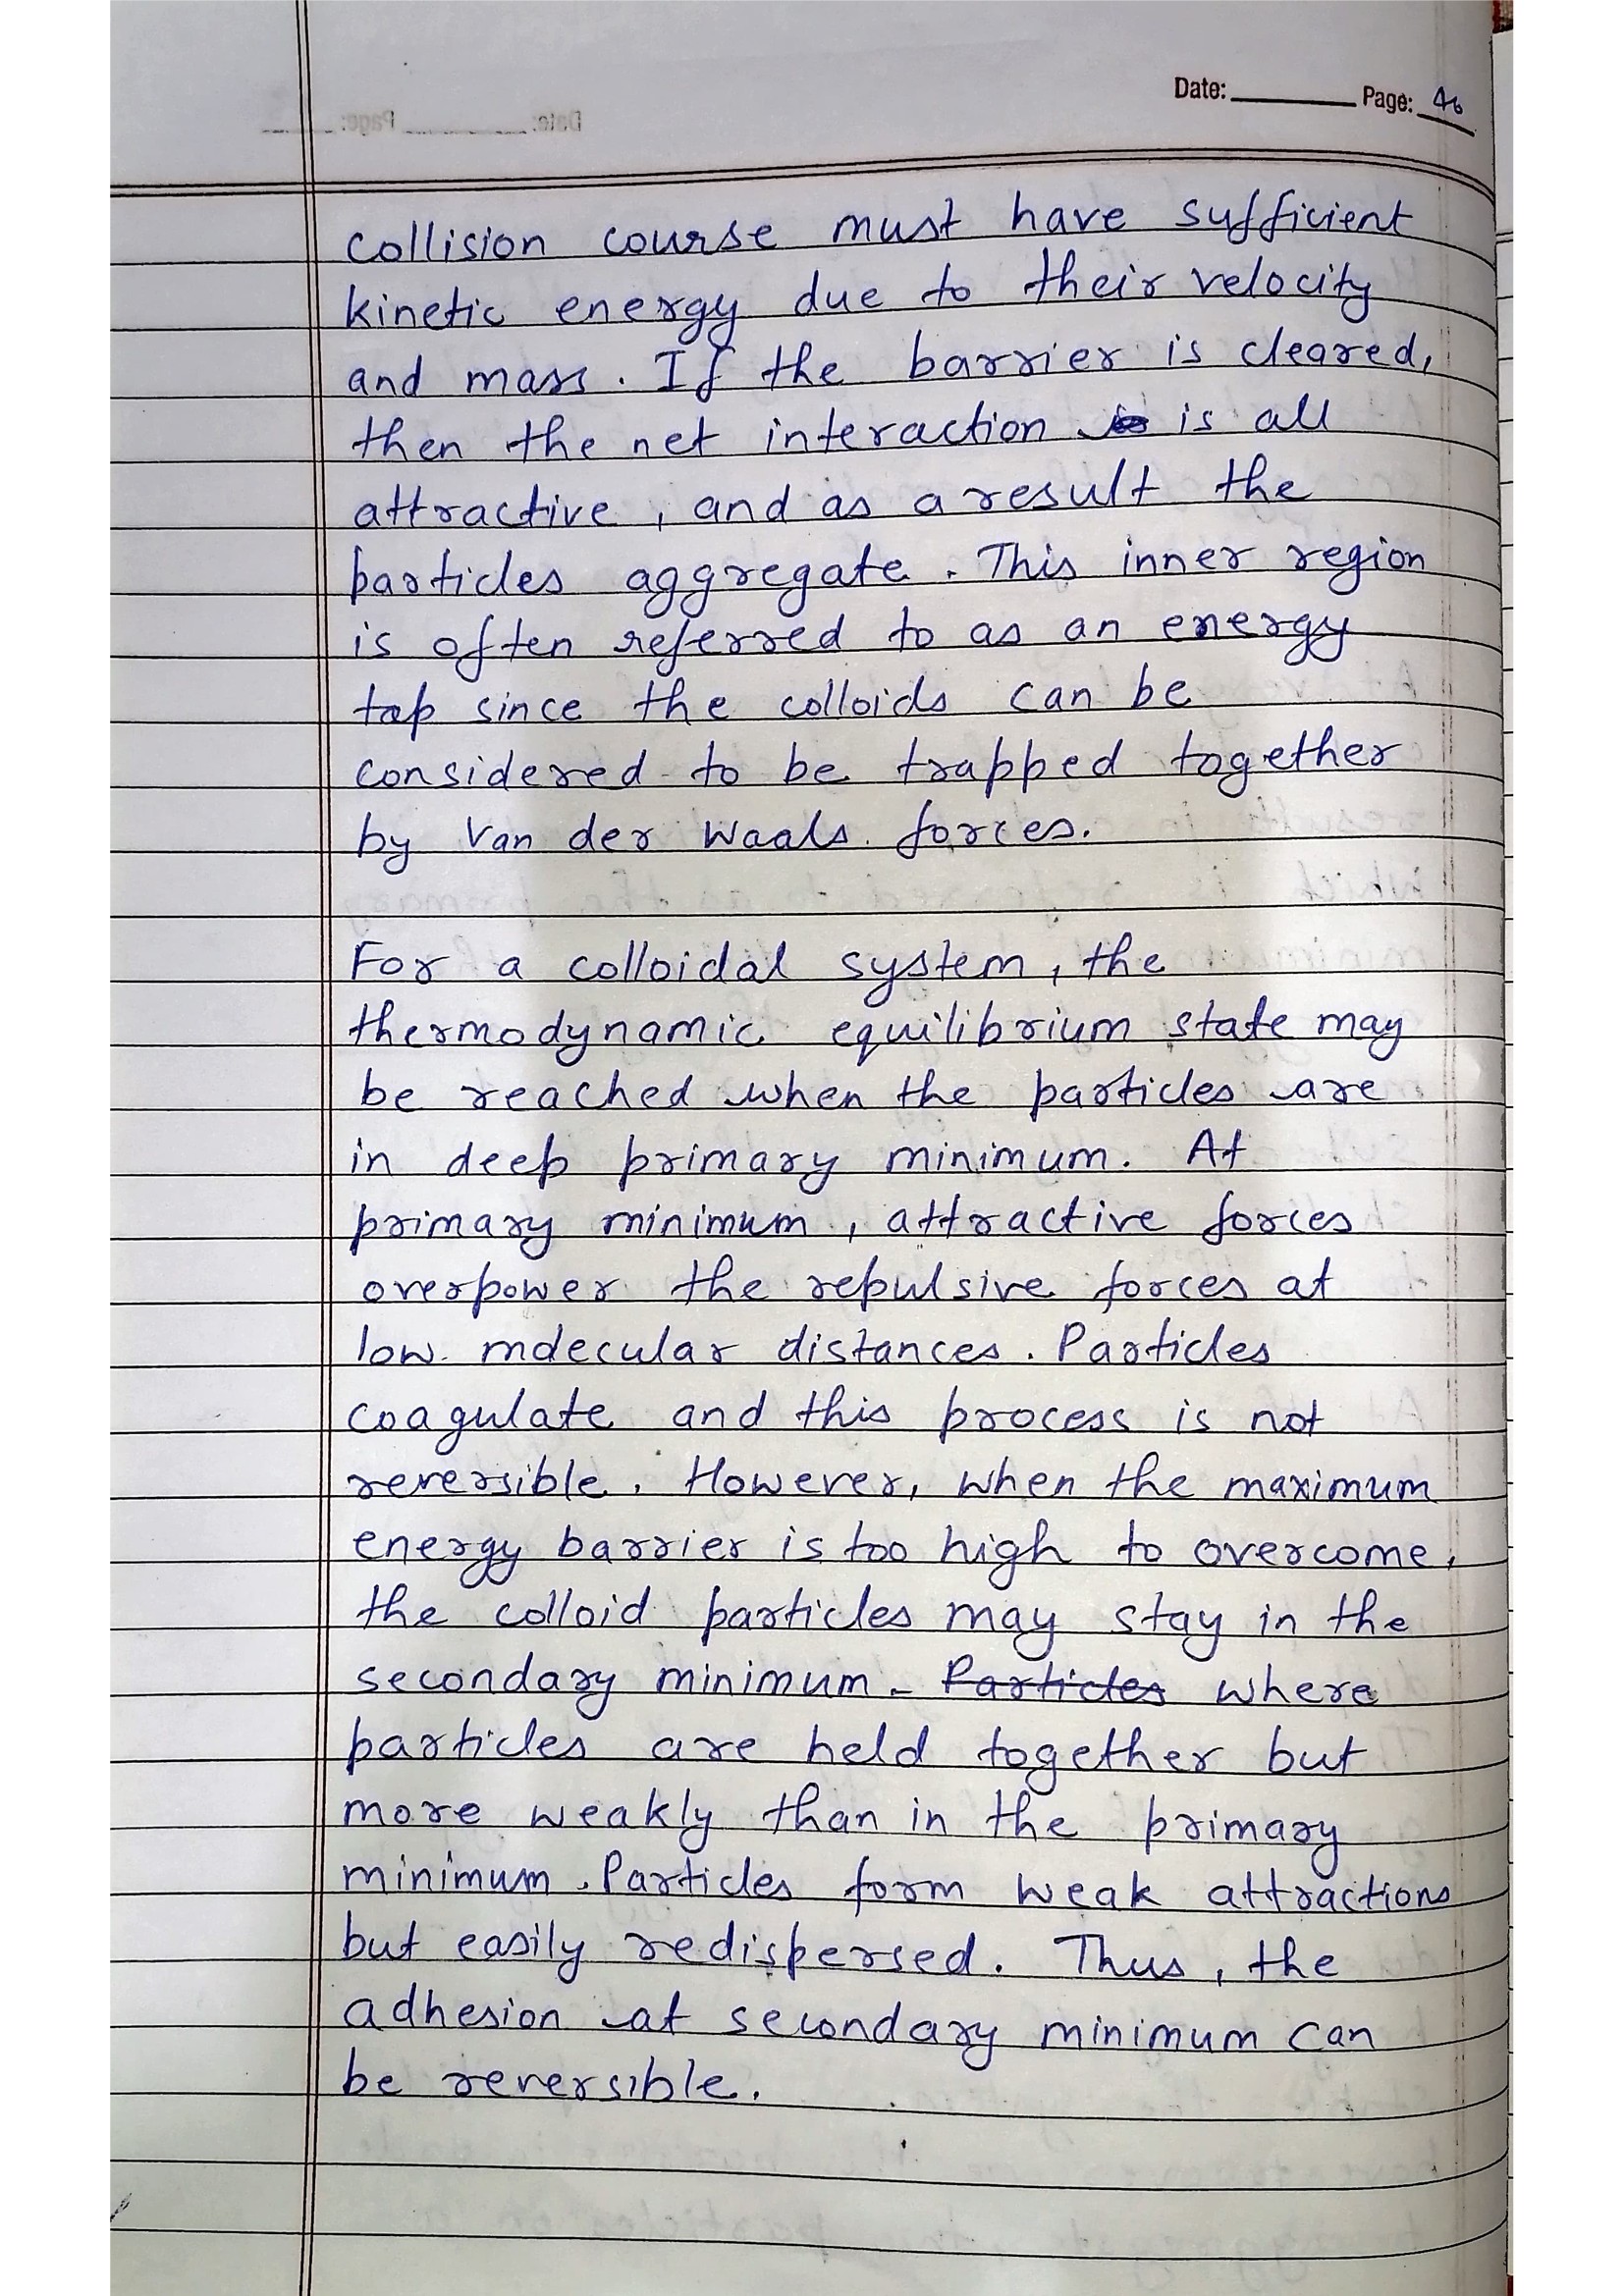 Date: Page: 46
collision course must have sufficient
kinetic energy due to their velocity
and mass. If the barrier is cleared,
then the net interaction is all
attractive, and as a result the
particles aggregate. This inner region
is often referred to as an energy
trap since the colloids can be
considered to be trapped together
by Van der Waals forces.
For a colloidal system, the
thermodynamic equilibrium state may
be reached when the particles are
in deep primary minimum. At
primary minimum, attractive forces
overpower the repulsive forces at
low molecular distances. Particles
coagulate and this process is not
reversible. However, when the maximum
energy barrier is too high to overcome,
the colloid particles may stay in the
secondary minimum. Particles where
particles are held together but
more weakly than in the primary
minimum. Particles form weak attractions
but easily redispersed. Thus, the
adhesion at secondary minimum can
be reversible.